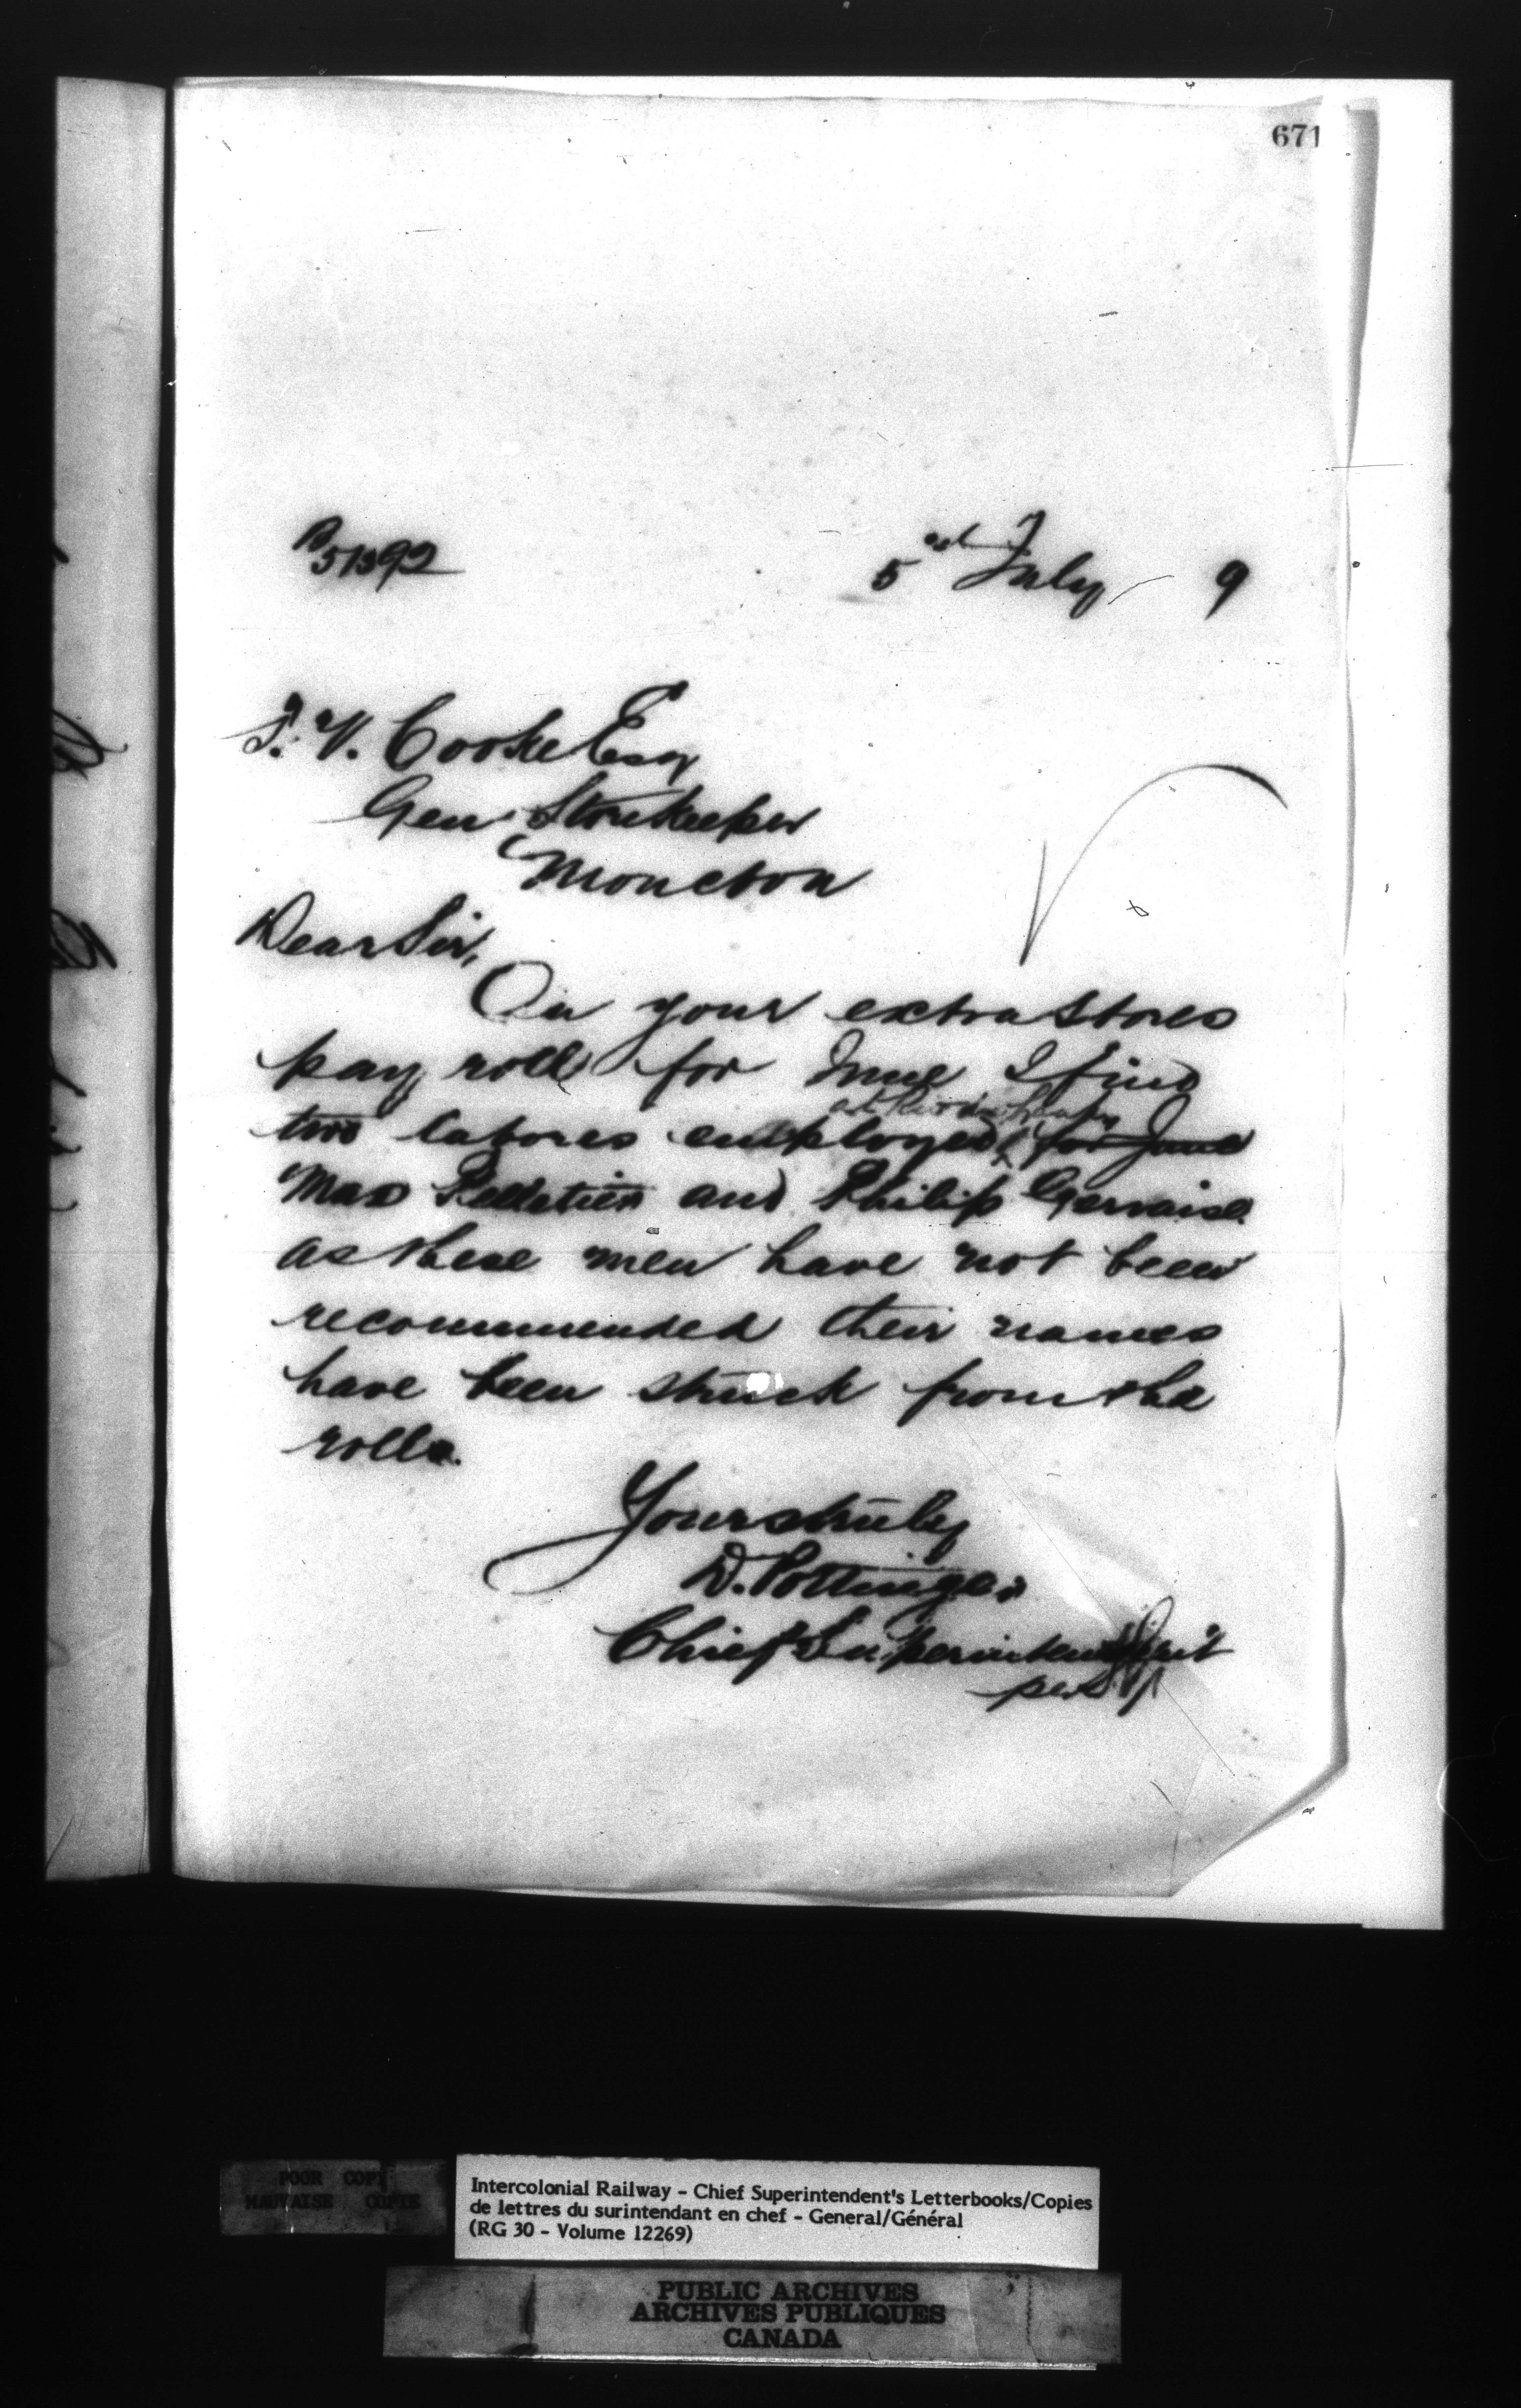 671
51392
5 July 9
T. V. Cooke Esq
Gen Storekeeper
Moncton
Dear Sir,
On your extra stores
pay roll for June I find
at Rivière du Loup
two labores employed for June
Max Pelletier and Philip Gervaise
as these men have not been
recommended their names
have been struck from the
rolls.
Yours truly
D. Pottinger
Chief Superintendent
per
POOR COPY
MAUVAISE COPIE
Intercolonial Railway - Chief Superintendent's Letterbooks/Copies
de lettres du surintendant en chef - General/Général
(RG 30 - Volume 12269)
PUBLIC ARCHIVES
ARCHIVES PUBLIQUES
CANADA